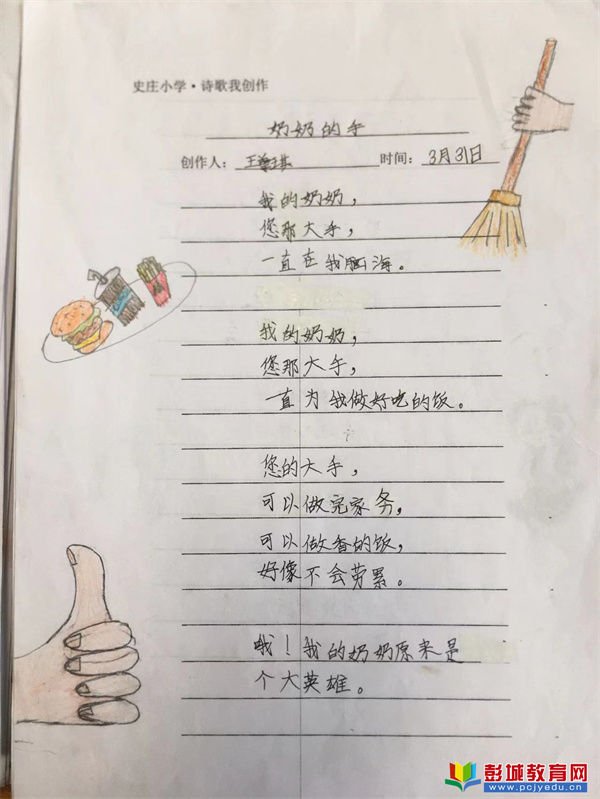 史庄小学·诗歌我创作
奶奶的手
创作人：王
时间：3月31日
我的奶奶，
您那大手，
一直在我脑海。
我的奶奶，
您那大手，
一直为我做好吃的饭。
您的大手，
可以做完家务，
可以做香的饭，
好像不会劳累。
哦！我的奶奶原来是
个大英雄。
彭城教育网
www.pcjyedu.cn